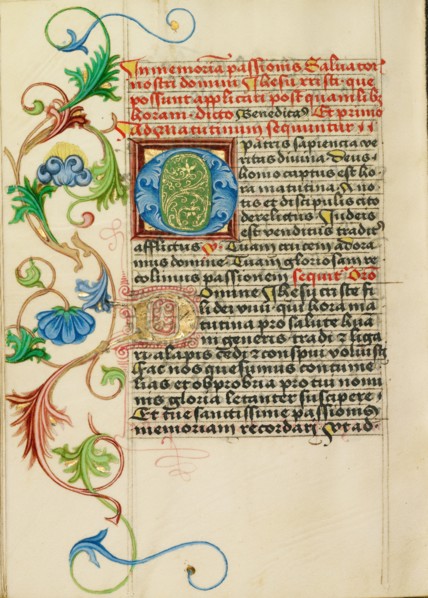 In memoria passionis Salvator
nostri domini Ihesu xristi · que
possunt applicari post quamlib
horam · dicto Benedicta9 Et primo
ad matutinum sequuntur
O patris sapiencia ve
ritas divina Deus
homo captus est ho
ra matutina A no
tis et discipulis cito
derelictus Iudeis
est venditus tradit9
afflictus Tuam crucem adora
mus domine Tuam gloriosam re
colimus passionem sequit Oro
Domine Ihesu criste fi
li dei vivi qui hora ma
tutina pro salute hua
ni generis tradi ⁊ liga
ri alapis cedi ⁊ conspui voluisti
fac nos quesumus contume
lias et obprobria pro tui nomi
nis gloria letanter suscipere ·
Et tue sanctissime passionis
memoriam recordari Ut ad-